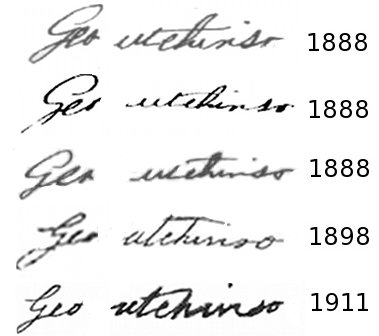 Geo utchinso 1888
Geo utchinso 1888
Geo utchinso 1888
Geo utchinso 1898
Geo utchinso 1911